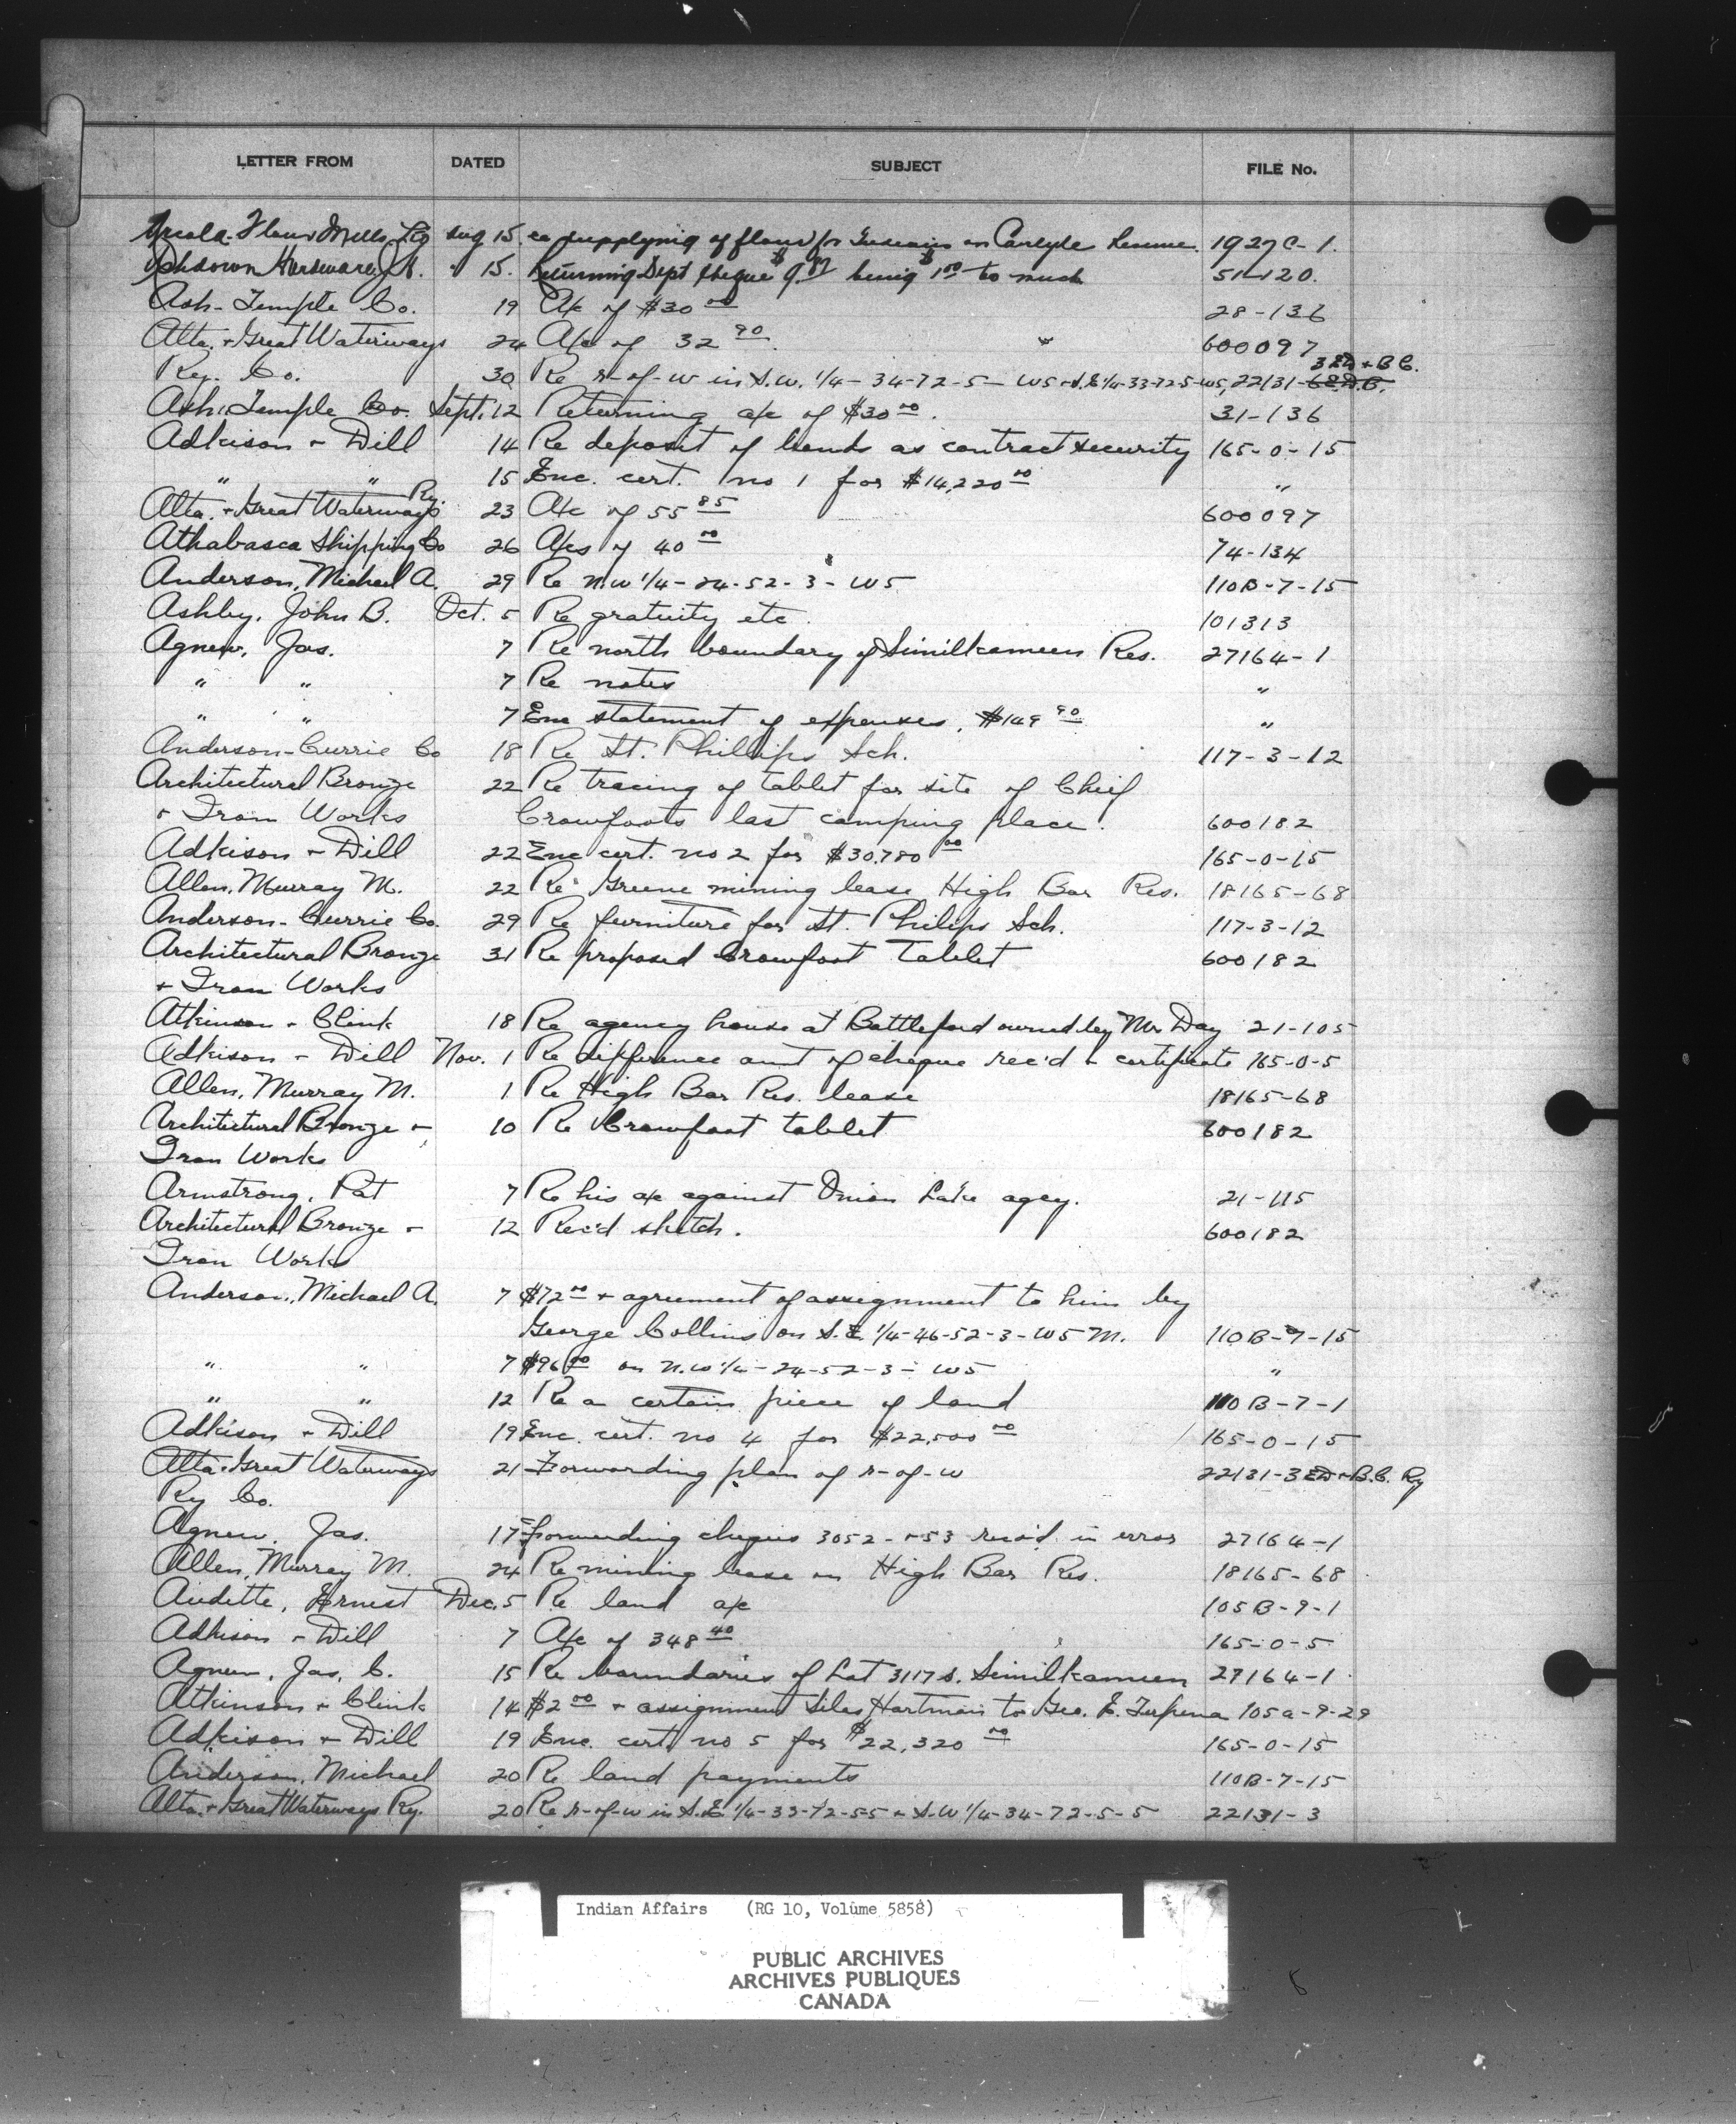 LETTER FROM DATED SUBJECT FILE No.
Arcola Flour Mills Aug 15 re supplying of flour for on Carlyle 1927C-1.
Ashdown Hardware, J.H. " 15. Returning Dept cheque being 1.00 to much 51-120.
Ash-Temple Co. 19 A/c of $30 00 28-136
Alta. + Great Waterways 24 A/c of 32 90 " 600097
Ry. Co. 30 Re r-of-w in S.W. 1/4-34-72-5-W5 + S.E 1/4-33-72-5-W5, 22131- 3 ED + B C.
Ash. Temple Co. Sept. 12 Returning a/c of $30 00. 31-136
Adkison + Dill 14 Re deposit of bonds as contract security 165-0-15
" " 15 Enc. cert. no 1 for $14,220 00 "
Alta. + Great Waterways Ry. 23 A/c of 55 85 600097
Athabasca Shipping Co 26 A/cs of 40 00 74-134
Anderson, Michael A. 29 Re N.W 1/4-24-52-3-W5 110B-7-15
Ashby, John B. Oct. 5 Re gratuity etc. 101313
Agnew, Jas. 7 Re north boundary of Similkameen Res. 27164-1
" " 7 Re notes "
" " 7 Enc statement of expenses. $149 90 "
Anderson-Currie Co 18 Re St. Phillips Sch. 117-3-12
Architectural Bronze 22 Re tracing of tablet for site of Chief
+ Iron Works Crowfoots last camping place. 600182
Adkison + Dill 22 Enc cert. no 2 for $30,780 00 165-0-15
Allen, Murray M. 22 Re Greene mining lease High Bar Res. 18165-68
Anderson-Currie Co. 29 Re furniture for St. Philips Sch. 117-3-12
Architectural Bronze 31 Re proposed Crowfoot Tablet 600182
+ Iron Works
Atkinson + Clink 18 Re agency house at Battleford owned by Mr Day 21-105
Adkison + Dill Nov. 1 Re difference amt of cheque rec'd + certificate 165-0-5
Allen, Murray M. 1 Re High Bar Res. lease 18165-68
Architectural Bronze + 10 Re Crowfoot tablet 600182
Iron Works
Armstrong, Pat 7 Re his a/c against Onion Lake agcy. 21-115
Architectural Bronze + 12 Rec'd sketch. 600182
Iron Works
Anderson, Michael A. 7 $72 00 + agreement of assignment to him by
George Collins on S.E 1/4-26-52-3-W5 M. 110B-7-15
" " 7 $96 00 on N.W 1/4-24-52-3-W5 "
" " 12 Re a certain piece of land 110B-7-1
Adkison + Dill 19 Enc. cert. no 4 for $22,500 00 165-0-15
Alta + Great Waterways 21 Forwarding plan of r-of-w 22131-3 ED + B.C. Ry
Ry Co.
Agnew, Jas. 17 Forwarding cheques 3052-+53 rec'd in error 27164-1
Allen, Murray M. 24 Re mining lease on High Bar Res. 18165-68
Audette, Ernest Dec. 5 Re land a/c 105B-9-1
Adkison + Dill 7 A/c of 348 40 165-0-5
Agnew, Jas. C. 15 Re boundaries of Lot 3117s. Similkameen 27164-1
Atkinson + Clink 14 $2 00 + assignment Silas Hartman to Geo. E. 105a-9-29
Adkison + Dill 19 Enc. cert. no 5 for $22,320 00 165-0-15
Anderson, Michael 20 Re land payments 110B-7-15
Alta. + Great Waterways Ry. 20 Re r-of-w in S.E 1/4-33-72-55 + S.W 1/4-34-72-5-5 22131-3
Indian Affairs (RG 10, Volume 5858)
PUBLIC ARCHIVES
ARCHIVES PUBLIQUES
CANADA